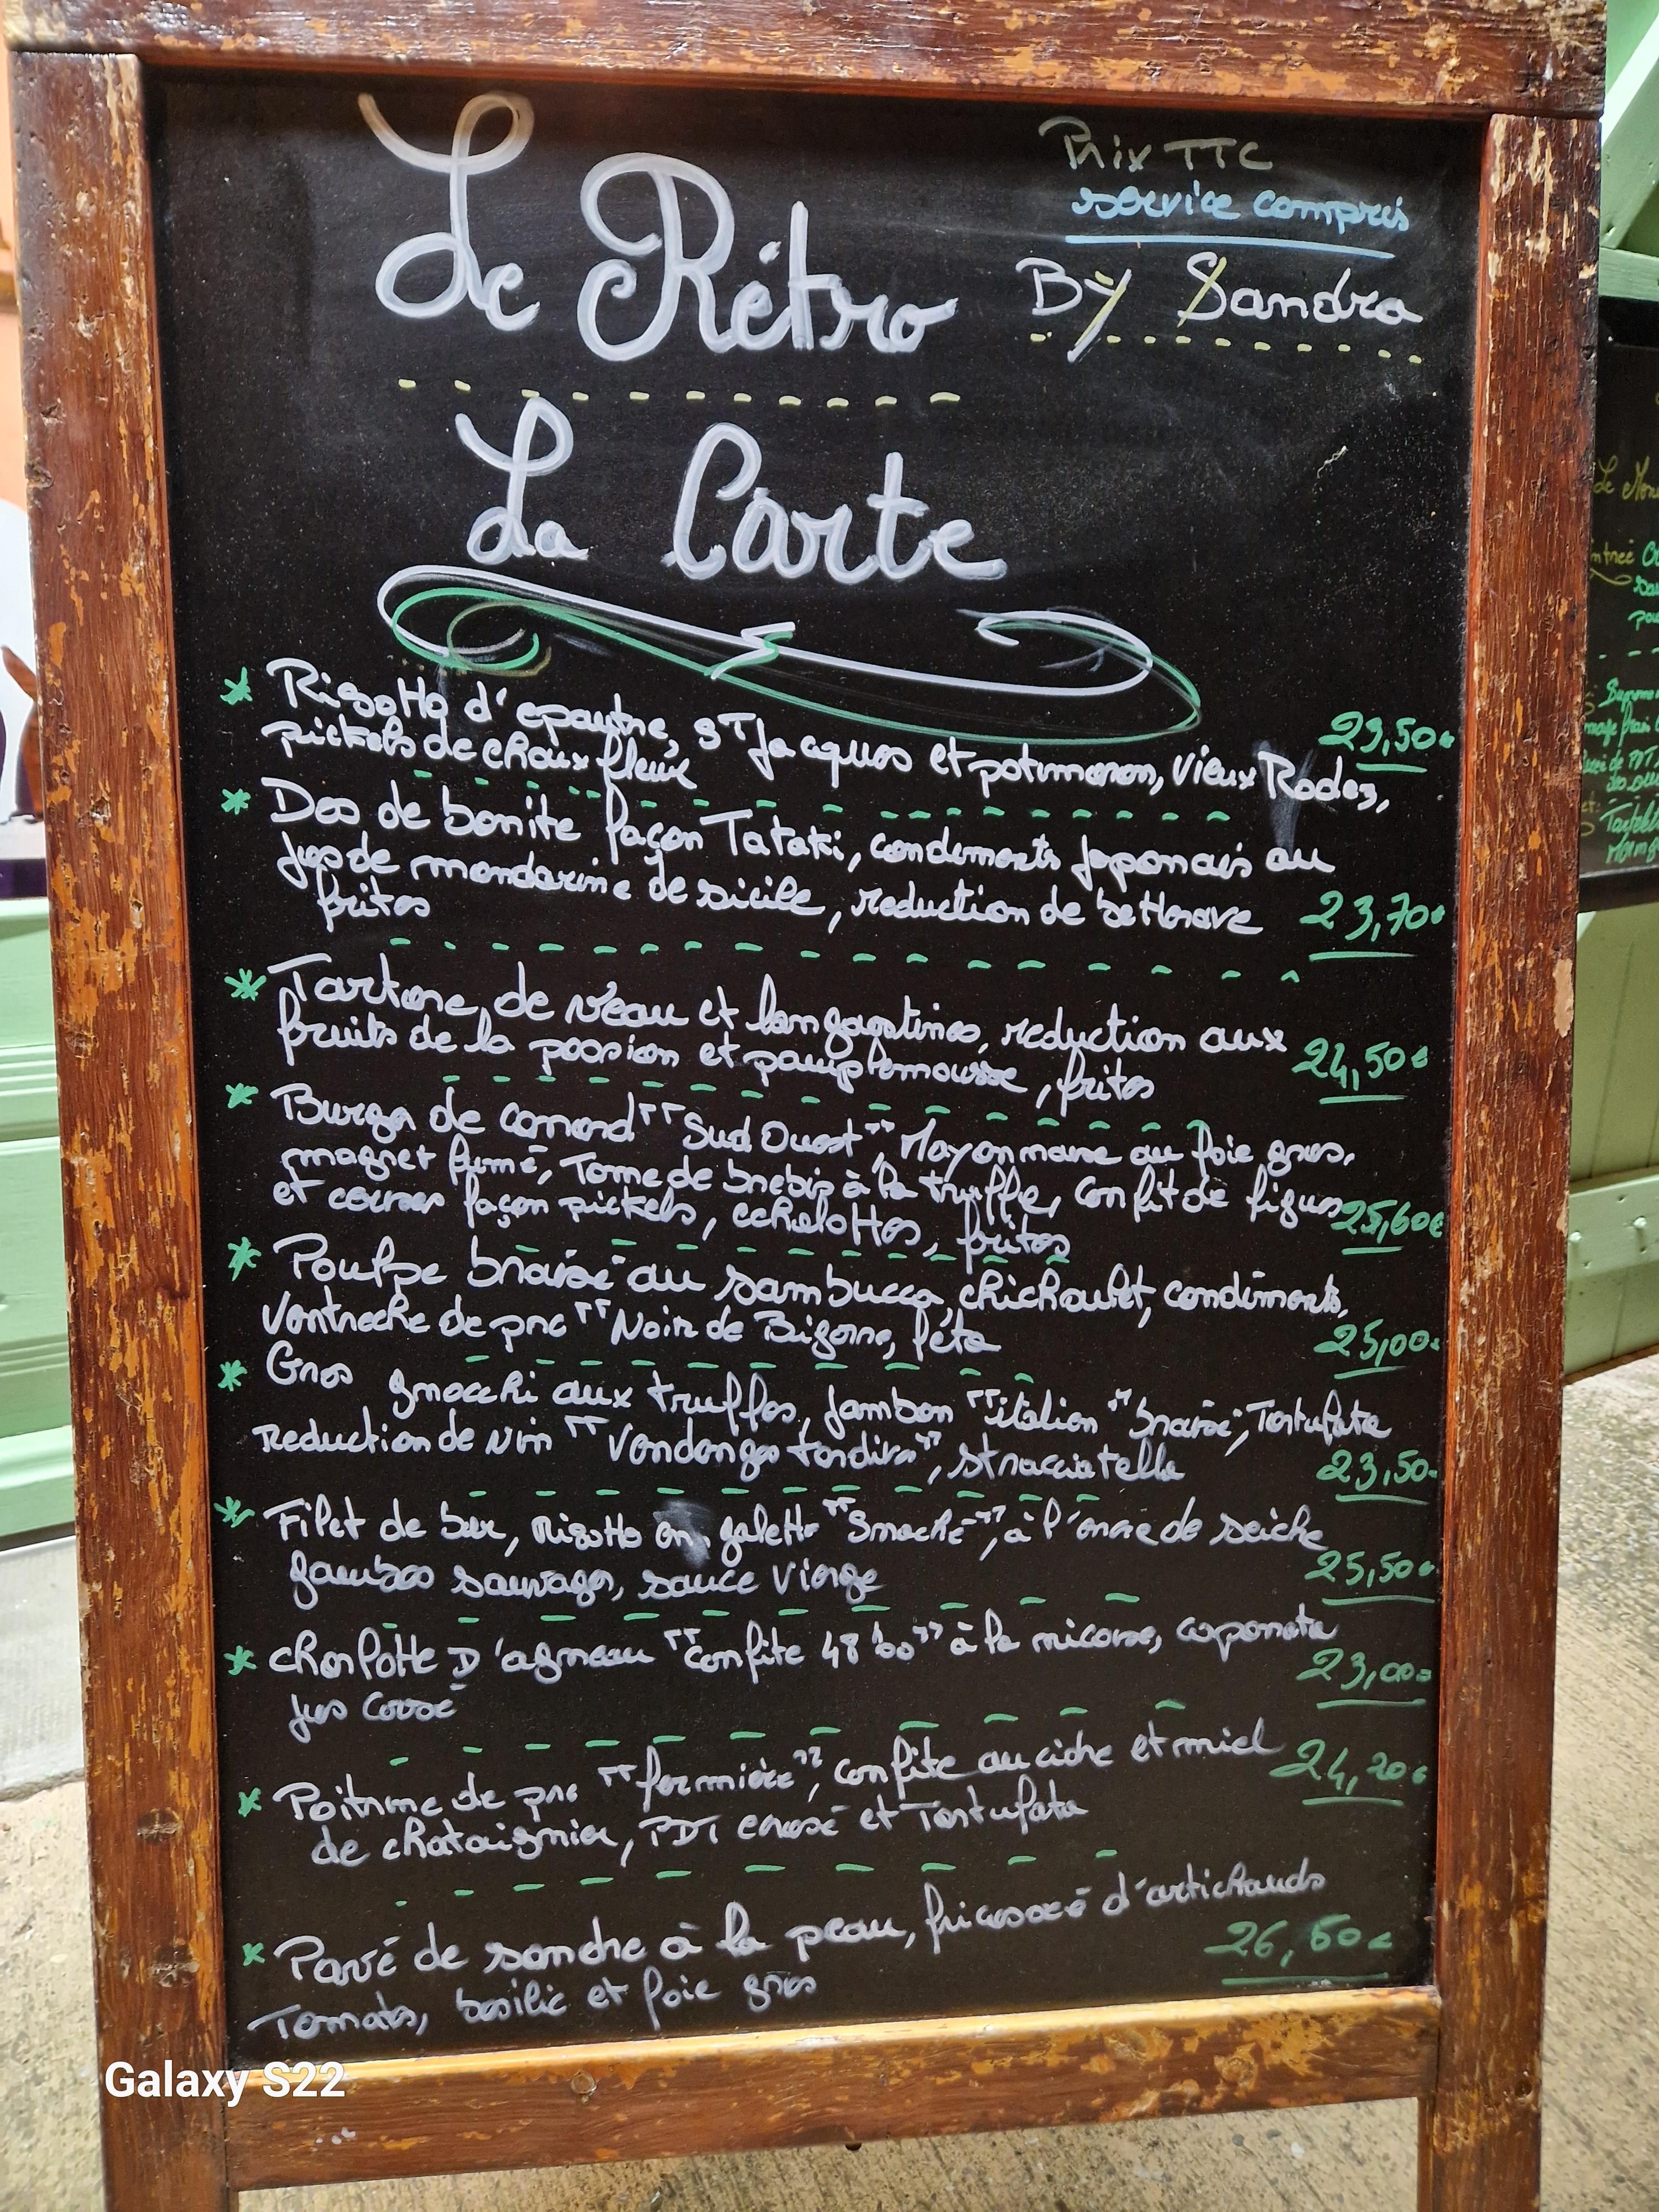 Prix TTC
service compris
Le Rétro
By Sandra
La Carte
Risotto d'epautre, ST Jacques et potimaron, vieux Rodez, 23,50€
pickels de choux fleur
Dos de bonite façon Tataki, condiments Japonais au
jus de mandarine de sicile, reduction de betterave 23,70€
frites
Tartare de veau et langoustines, reduction aux
fruits de la passion et pamplemousse, frites 24,50€
Burger de canard "Sud Ouest", Mayonnaise au foie gras,
magret fumé, Tome de brebis à la truffe, confit de figues
et cerises façon pickels, echalottes, frites 25,60€
Poulpe braisé au sambucca, chichoulet, condiments,
Ventreche de porc "Noir de Bigorre, féta 25,00€
Gros gnocchi aux truffes, Jambon "italien" braisé, Tartufata
Reduction de vin "Vendanges tardives", stracciatella 23,50€
Filet de bar, Risotto en galette "Snacké", à l'encre de seiche
gambas sauvages, sauce Vierge 25,50€
charlotte D'agneau "confite 48 h00" à la niçoise, caponata
Jus Corsé 23,00€
Poitrine de porc "fermière", confite au cidre et miel
de chataignier, PDT ecrasé et Tartufata 24,20€
Pavé de sandre à la peau, fricassée d'artichauds
Tomates, basilic et foie gras 26,50€
Galaxy S22